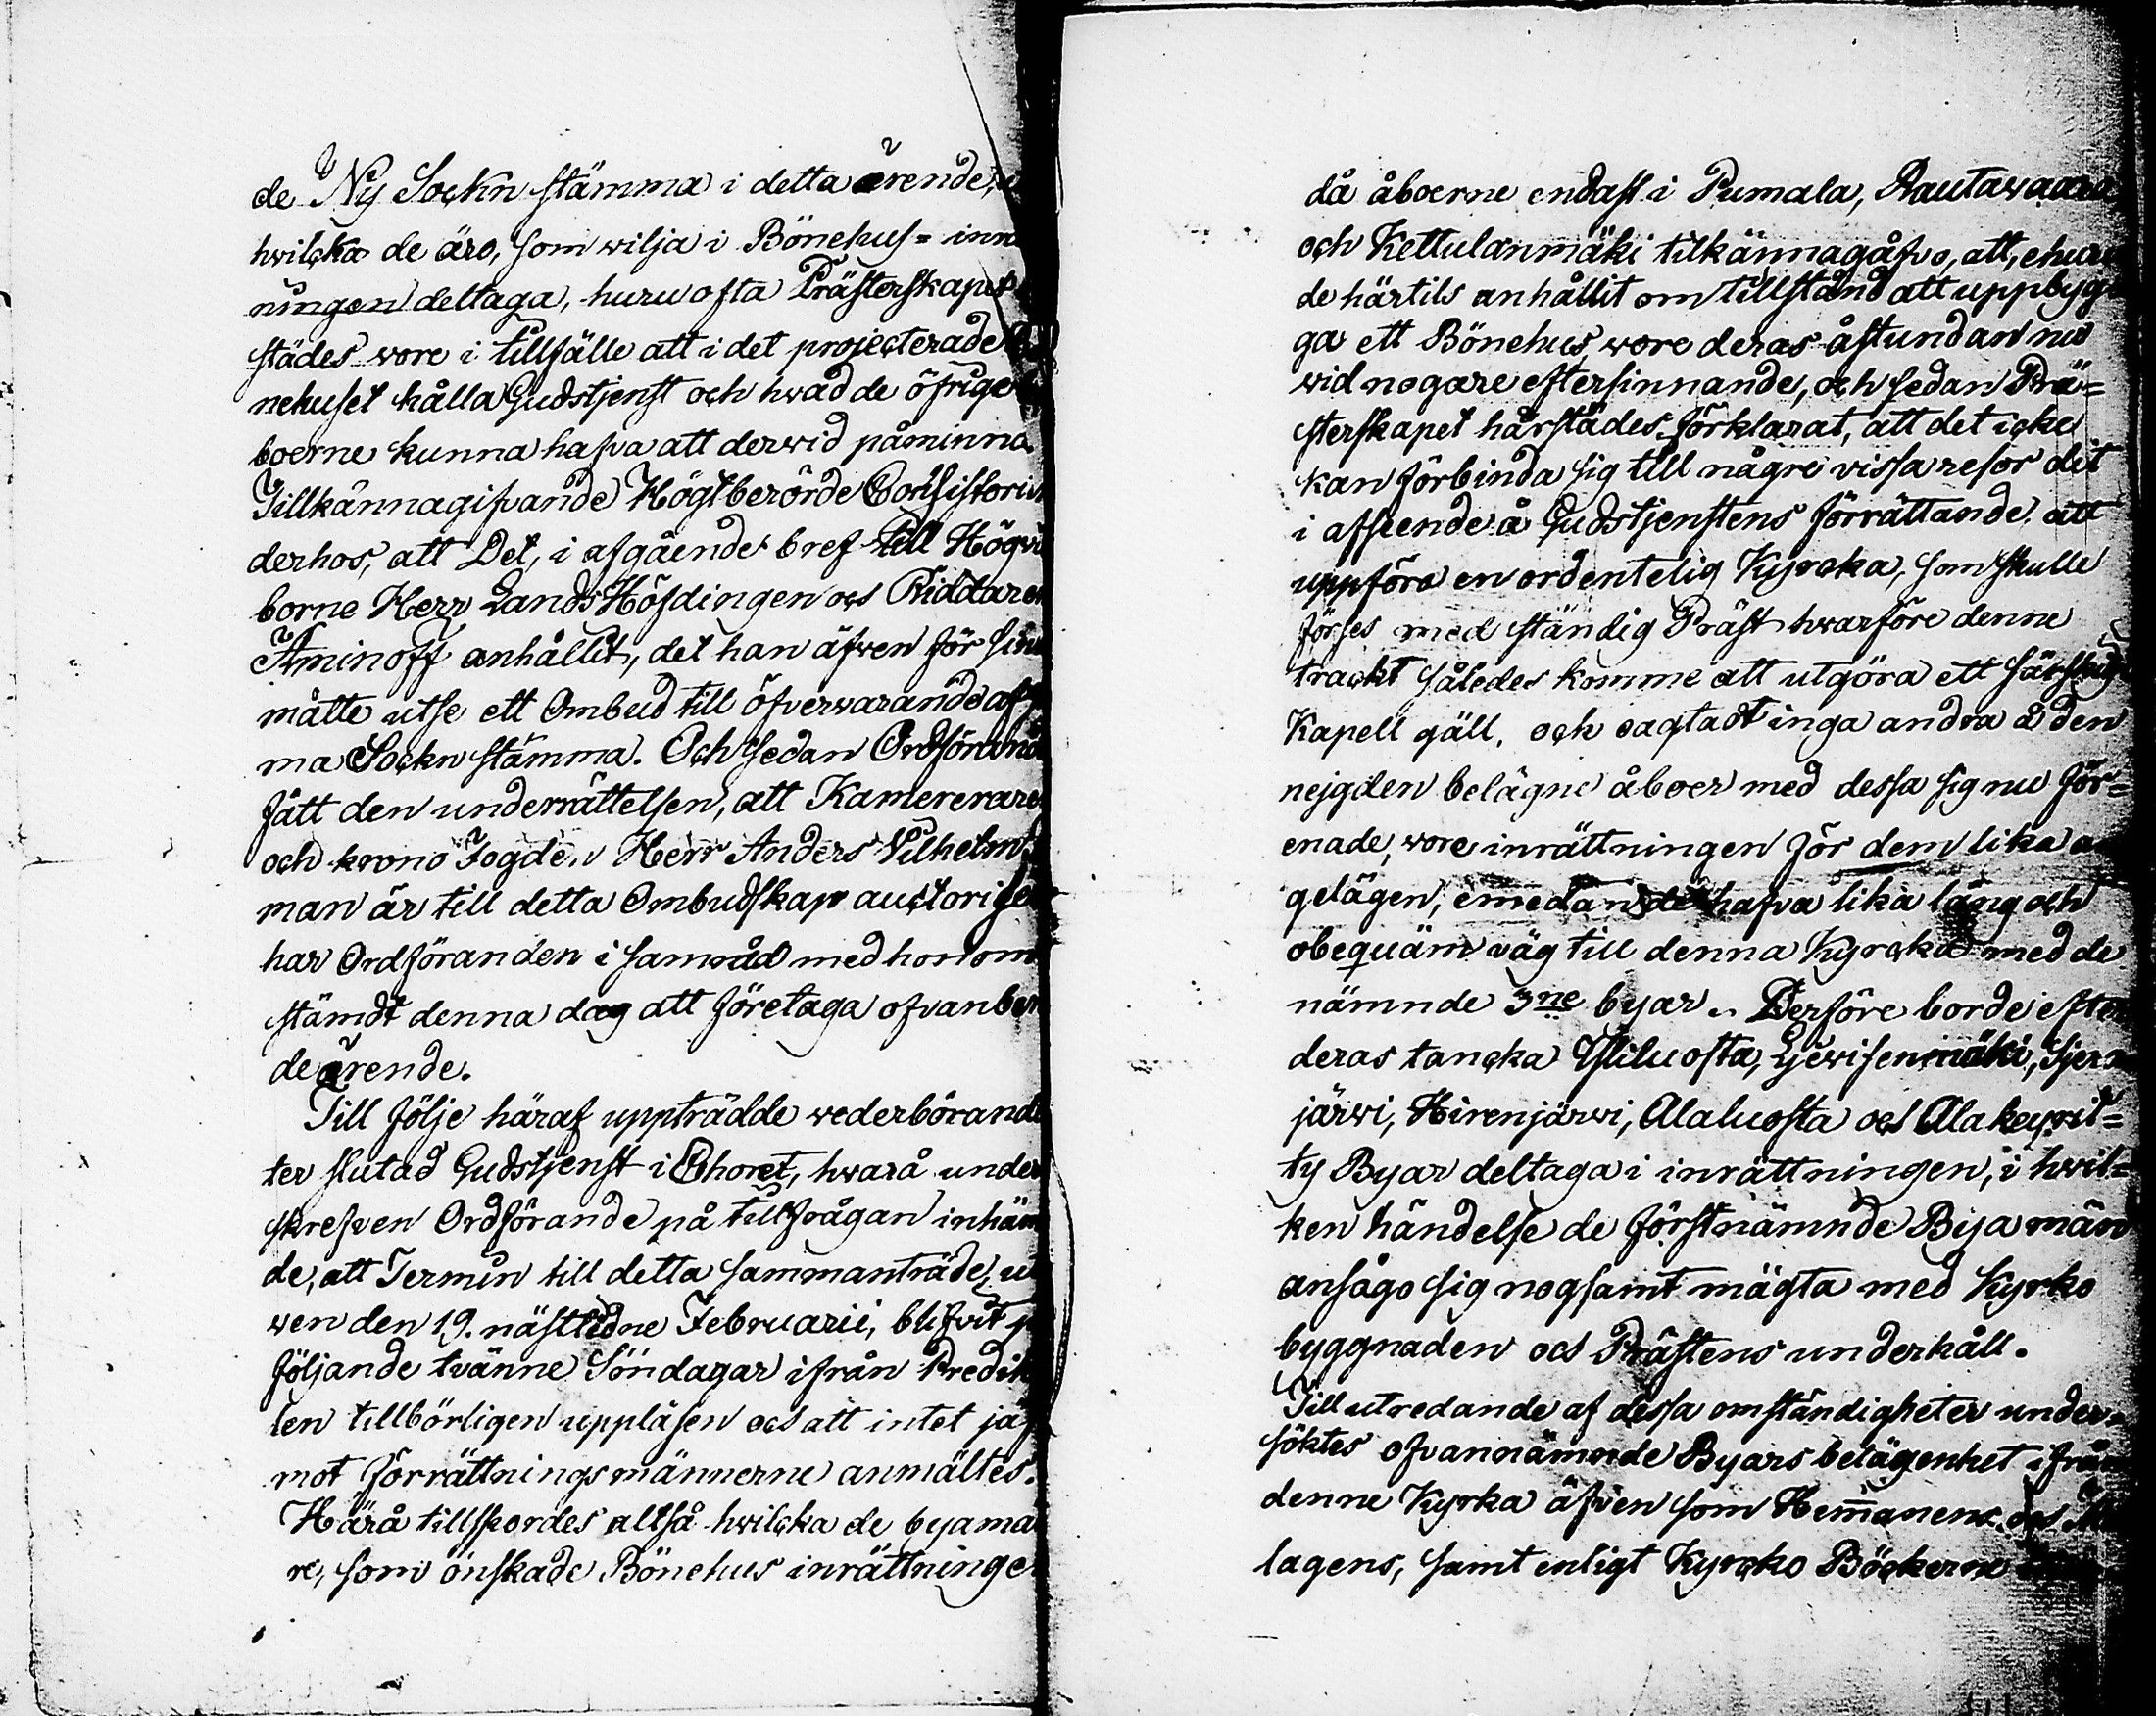 de Ny Sockn stämma i detta ärende,
hvilcka de äro, som wilja i Bönehus=
ningen deltaga, huru ofta Prästerskapet
städes wore i tillfälle att i det projecterade
nehuset hålla Gudstjenst och hwad de öfrige
boerne kunna hafva att derwid påminna.
Tillkännagifvande Högtberörde Consistorium
derhos, att Det, i afgående bref till Högvä
borne Herr Lands Höfdingen och Riddaren
Aminoff anhållit, det han äfwen för sin
måtte utse ett Ombud till öfverwarande af
ma Sockn stämma. Och sedan Ordförand
fått den underrättelsen, att Kamereraren
och krono Fogden Herr Anders Vilhelm
man är till detta Ombudskap auctoriserad
har Ordföranden i samråd med honom
stämdt denna dag att företaga ofvanber
de ärende.
Till följe häraf uppträdde wederbörande
ter slutad Gudstjenst i Choret, hwarå under
skrefven Ordförande på tillfrågan inhäm
de, att Termin till detta sammanträde,
wen den 19. nästledne Februarii, blifvit
följande tvänne Söndagar ifrån Predik
len tillbörligen uppläsen och att intet jäf
mot förrättningsmännerne anmältes.
Härå tillspordes altså hvilcka de byamä
re, som önskade Bönehus inrättningen
då åboerne endast i Pumala, Rautawaara
och Kettulanmäki tilkännagåfvo, att, ehuru
de härtils anhållit om tillstånd att uppbyg=
ga ett Bönehus, wore deras åstundan nu
wid nogare eftersinnande, och sedan Prä=
sterskapet härstädes förklarat, att det icke
kan förbinda sig till någre vissa resor dit
i afseende å Gudstjenstens förrättande, att
uppföra en ordentelig Kyrcka, som skulle
förses med ständig Präst hwarföre denne
trackt således komme att utgöra ett särskildt
Kapell gäll. och oagtadt inga andra å den
nejgden belägne åboer med dessa sig nu för=
enade, wore inrättningen för dem lika an
gelägen, emedan de hafva lika lång och
obequäm väg till denna Kyrcka med de
nämnde 3ne byar. Derföre borde efter
deras tancka Yliluosta, Ljewisenmäki,
järwi, Hirenjärwi, Alaluosta och Ala keyrit=
ty Byar deltaga i inrättningen, i hwil=
ken händelse de förstnämnde Bya män
ansågo sig nogsamt mägta med Kyrko
byggnaden och Prästens underhåll.
Till utredande af dessa omständigheter under=
söktes ofvannämnde Byars belägenhet ifrån
denne Kyrka äfven som Hem̄anens och
lagens, samt enligt Kyrcko Böckerne